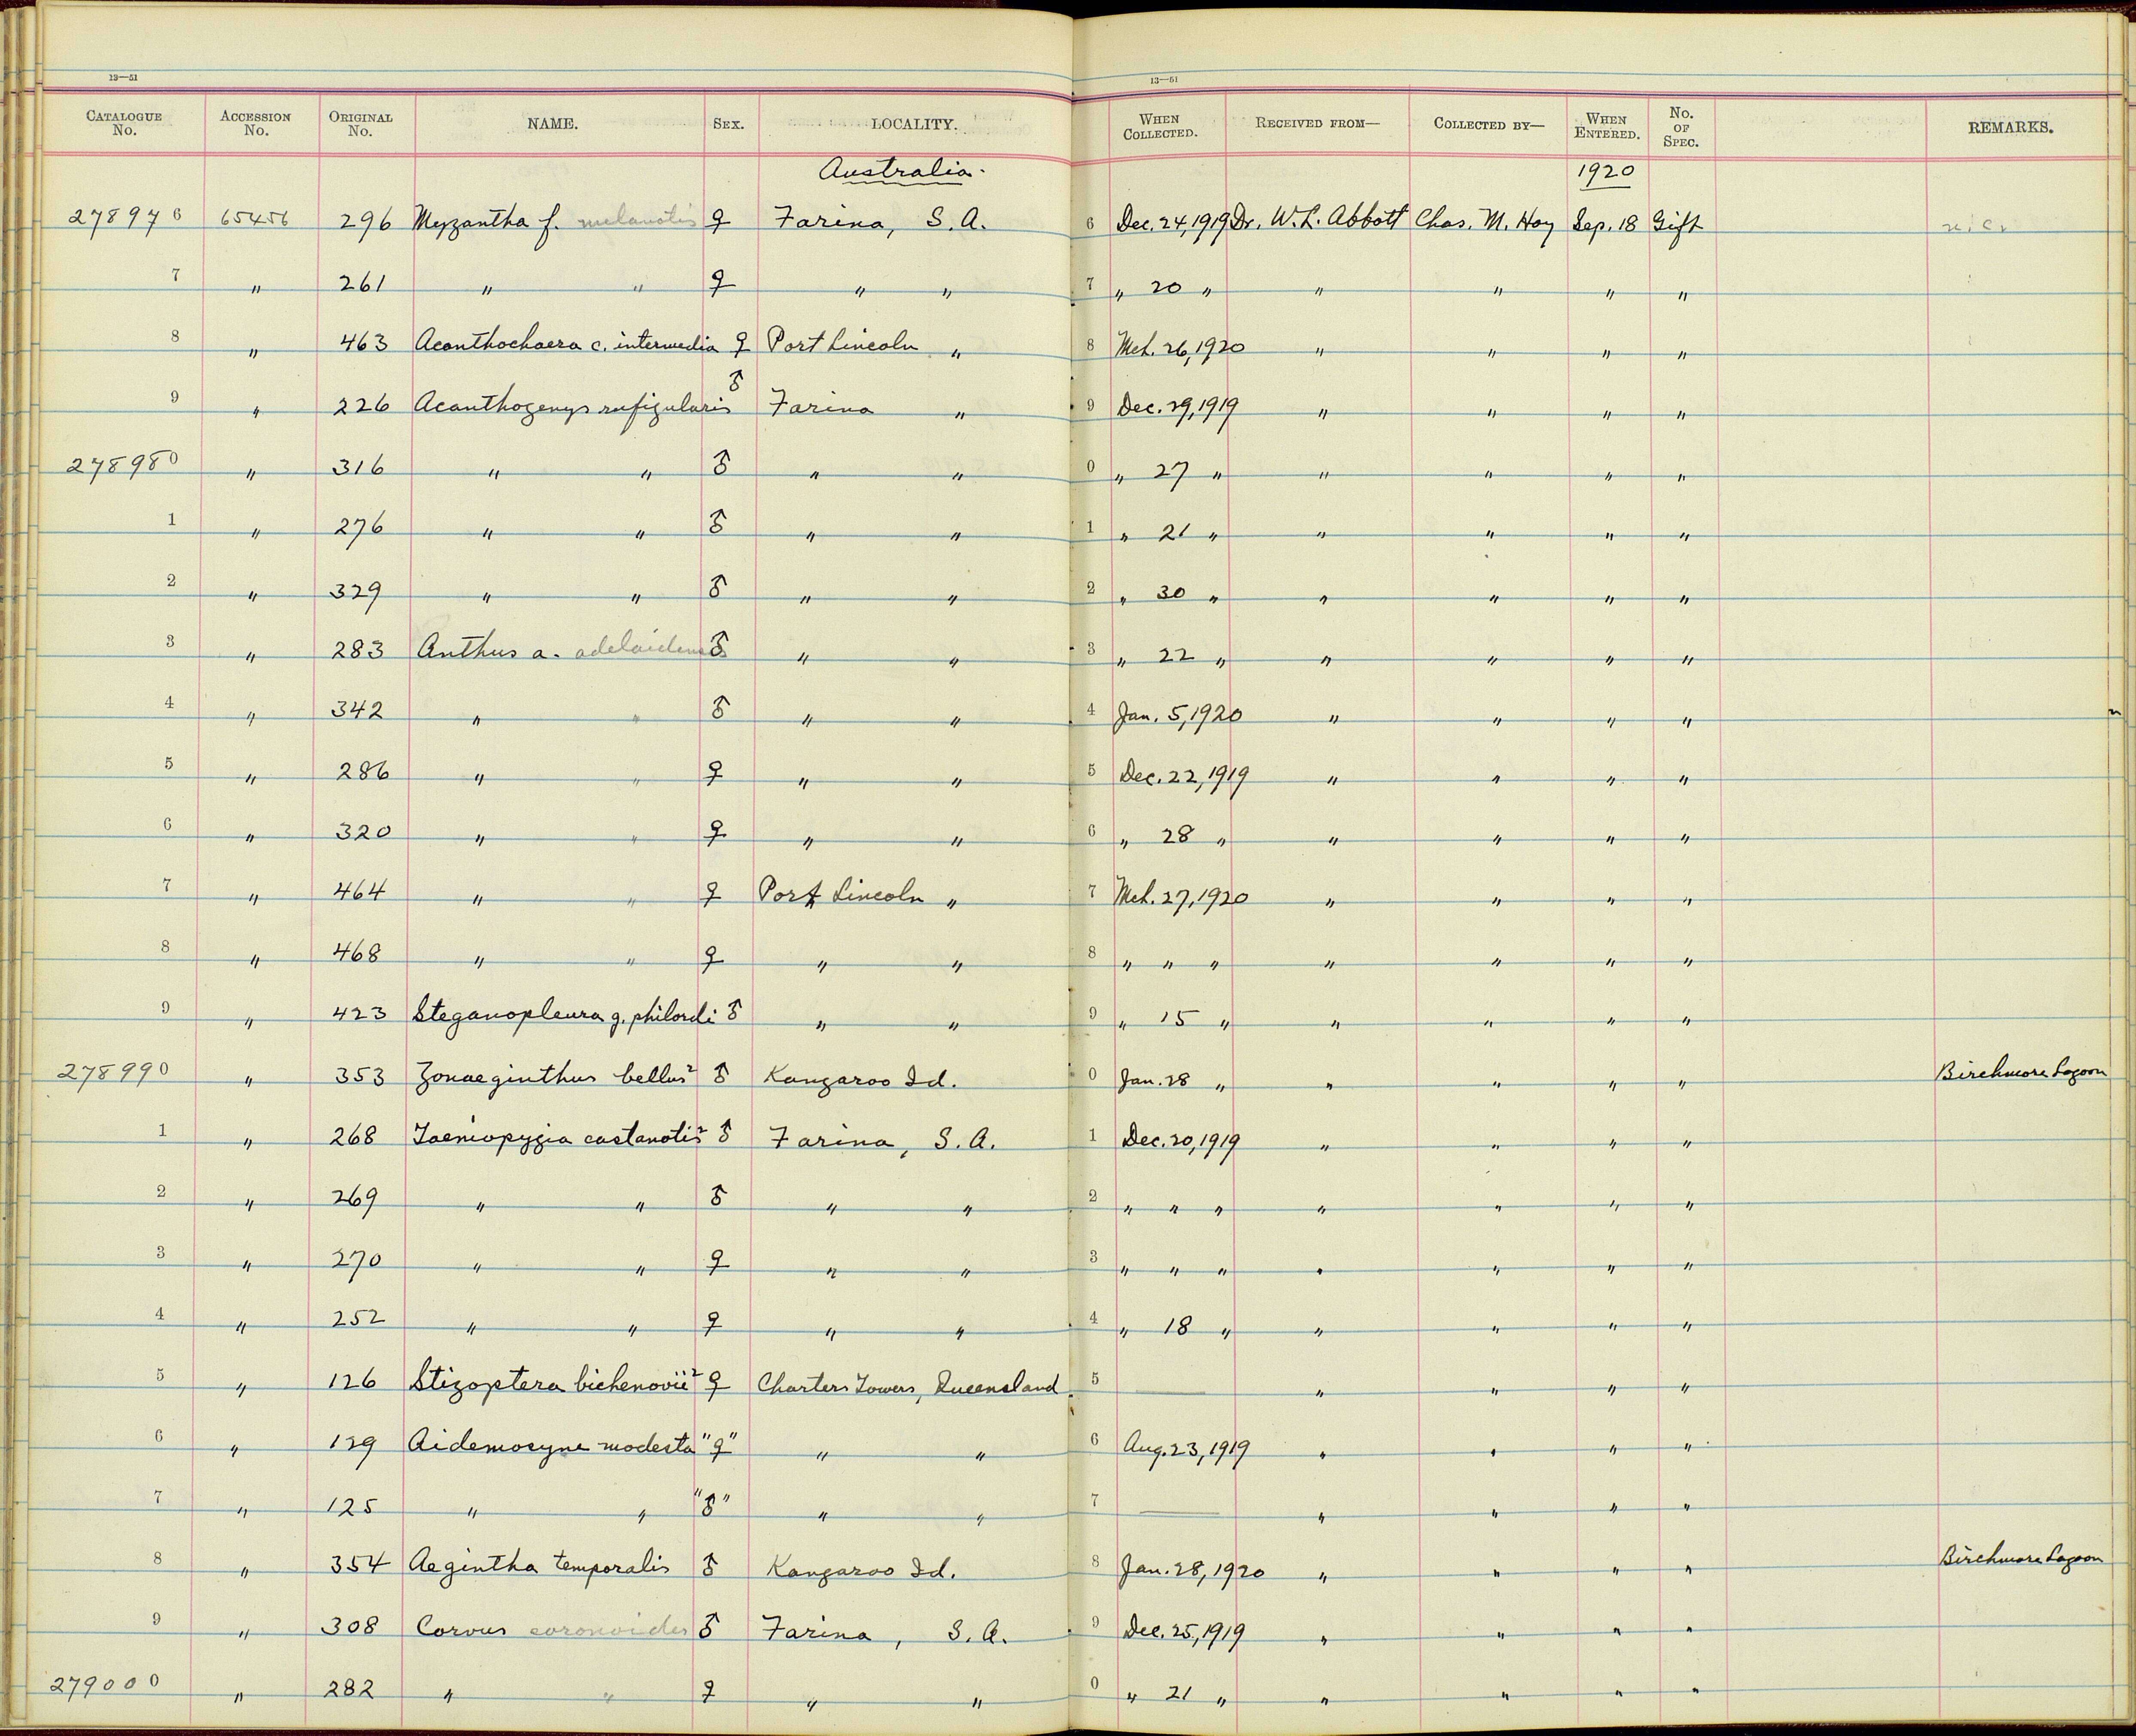 13—51 13—51
CATALOGUE No. ACCESSION No. ORIGINAL No. NAME. SEX. LOCALITY. WHEN COLLECTED. RECEIVED FROM— COLLECTED BY— WHEN ENTERED. No. OF SPEC. REMARKS.
Australia. 1920
278976 65456 296 Myzantha f. melanotis ♀ Farina, S.A. 6 Dec. 24, 1919 Dr. W. L. Abbott Chas. M. Hoy Sep. 18 Gift
7 " 261 " " ♀ " " 7 " 20 " " " " "
8 " 463 Acanthochaera c. intermedia ♀ Port Lincoln " 8 Mch. 26, 1920 " " " "
9 " 226 Acanthogenys rufigularis ♂ Farina " 9 Dec. 29, 1919 " " " "
278980 " 316 " " ♂ " " 0 " 27 " " " " "
1 " 276 " " ♂ " " 1 " 21 " " " " "
2 " 329 " " ♂ " " 2 " 30 " " " " "
3 " 283 Anthus a. adelaidensis ♂ " " 3 " 22 " " " " "
4 " 342 " " ♂ " " 4 Jan. 5, 1920 " " " "
5 " 286 " " ♀ " " 5 Dec. 22, 1919 " " " "
6 " 320 " " ♀ " " 6 " 28 " " " " "
7 " 464 " " ♀ Port Lincoln " 7 Mch. 27, 1920 " " " "
8 " 468 " " ♀ " " 8 " " " " " " "
9 " 423 Steganopleura g. philordi ♂ " " 9 " 15 " " " " "
278990 " 353 Zonaeginthus bellus² ♂ Kangaroo Id. 0 Jan. 28 " " " " " Birchmore Lagoon
1 " 268 Taeniopygia castanotis² ♂ Farina, S.A. 1 Dec. 20, 1919 " " " "
2 " 269 " " ♂ " " 2 " " " " " " "
3 " 270 " " ♀ " " 3 " " " " " " "
4 " 252 " " ♀ " " 4 " 18 " " " " "
5 " 126 Stizoptera bichenovii² ♀ Charters Towers, Queensland 5 — " " " "
6 " 129 Aidemosyne modesta "♀" " " 6 Aug. 23, 1919 " " " "
7 " 125 " " "♂" " " 7 — " " " "
8 " 354 Aegintha temporalis ♂ Kangaroo Id. 8 Jan. 28, 1920 " " " " Birchmore Lagoon
9 " 308 Corvus coronoides ♂ Farina, S.A. 9 Dec. 25, 1919 " " " "
279000 " 282 " " ♀ " " 0 " 21 " " " " "